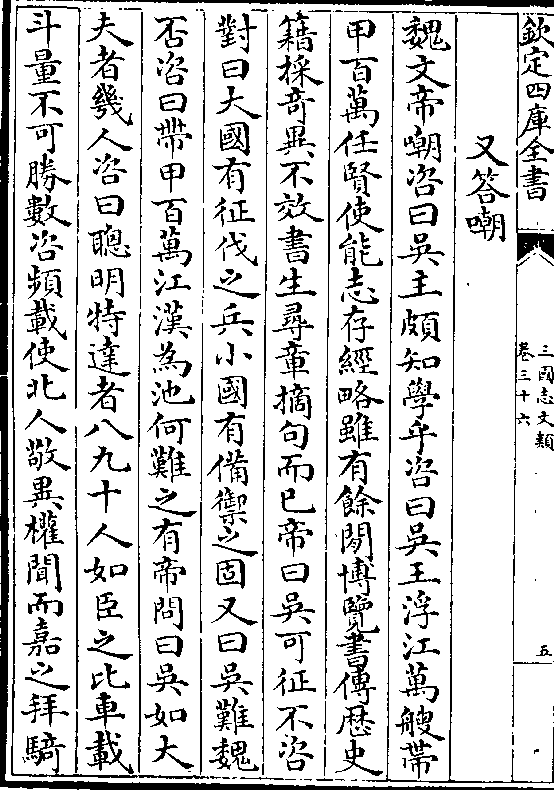 欽定四庫全書
三國志文類
卷三十六
五
又答嘲
魏文帝嘲咨曰吳主頗知學乎咨曰吳王浮江萬艘帶
甲百萬任賢使能志存經略雖有餘閒博覽書傳歴史
籍採竒異不效書生尋章摘句而已帝曰吳可征不咨
對曰大國有征伐之兵小國有備禦之固又曰吳難魏
否咨曰帶甲百萬江漢為池何難之有帝問曰吳如大
夫者幾人咨曰聰明特達者八九十人如臣之比車載
斗量不可勝數咨頻載使北人敬異權聞而嘉之拜騎